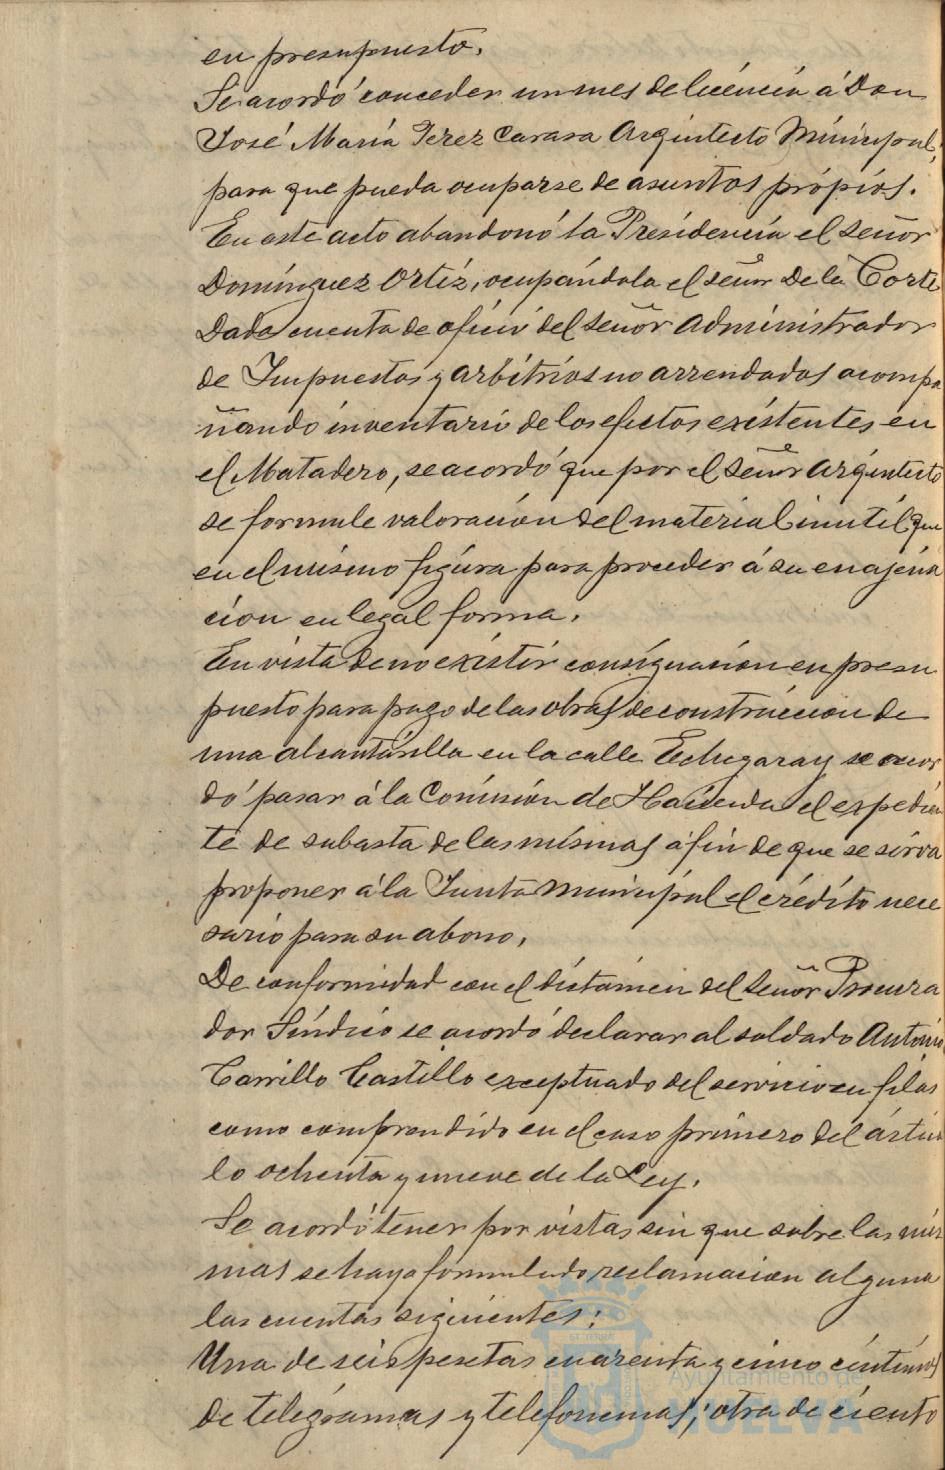 en presupuesto.
Se acordó conceder un mes de licéncia á Don
José María Perez Carasa Arquitecto Múnicipal,
para que pueda ocuparse de asuntos própios.
En este acto abandonó la Presidencia el señor
Domínguez Ortíz, ocupándola el señor De la Corte
Dada cuenta de oficio del señor Administrador
de Impuestos y arbítrios no arrendados acompa
ñando inventario de los efectos existentes en
el Matadero, se acordó que por el señor Arquitecto
se formule valoración del material inutil que
en el mismo figúra para proceder á su enajena
cion en legal forma.
En vista de no existir consignación en presu
puesto para pago de las obras de construccion de
una alcantarilla en la calle Echegaray se acor
dó pasar á la Comisión de Hacienda el expedien
te de subasta de las mismas á fin de que se sirva
proponer á la Junta Municipal el crédito nece
sario para su abono.
De conformidad con el dictámen del señor Procura
dor Síndico se acordó declarar al soldado António
Carrillo Castillo exceptuado del servicio en filas
como comprendido en el caso primero del artícu
lo ochenta y nueve de la Ley.
Se acordó tener por vistas sin que sobre las mis
mas se haya formulado reclamacion alguna
las cuentas siguientes:
Una de seis pesetas cuarenta y cinco céntimos
de telégramas y telefonemas; otra de ciento
Ayuntamiento de
HUELVA